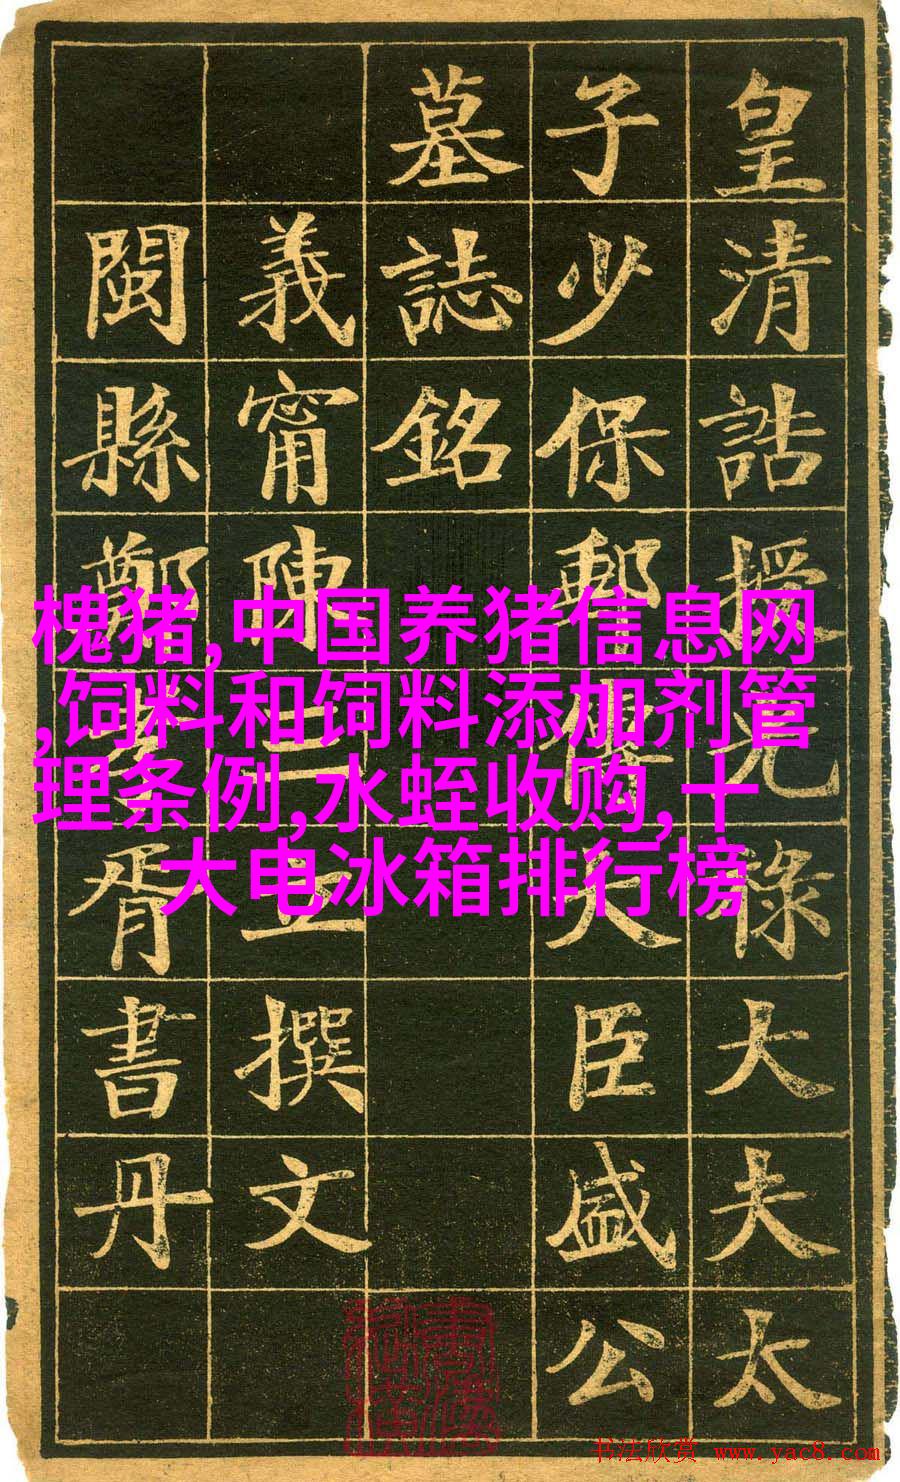 皇清誥授光祿大夫太
子少保郵傳大臣盛公
墓誌銘
義甯陳三立撰文
閩縣鄭孝胥書丹
槐猪,中国养猪信息网
,饲料和饲料添加剂管
理条例,水蛭收购,十
大电冰箱排行榜
书法欣赏 www.yac8.com